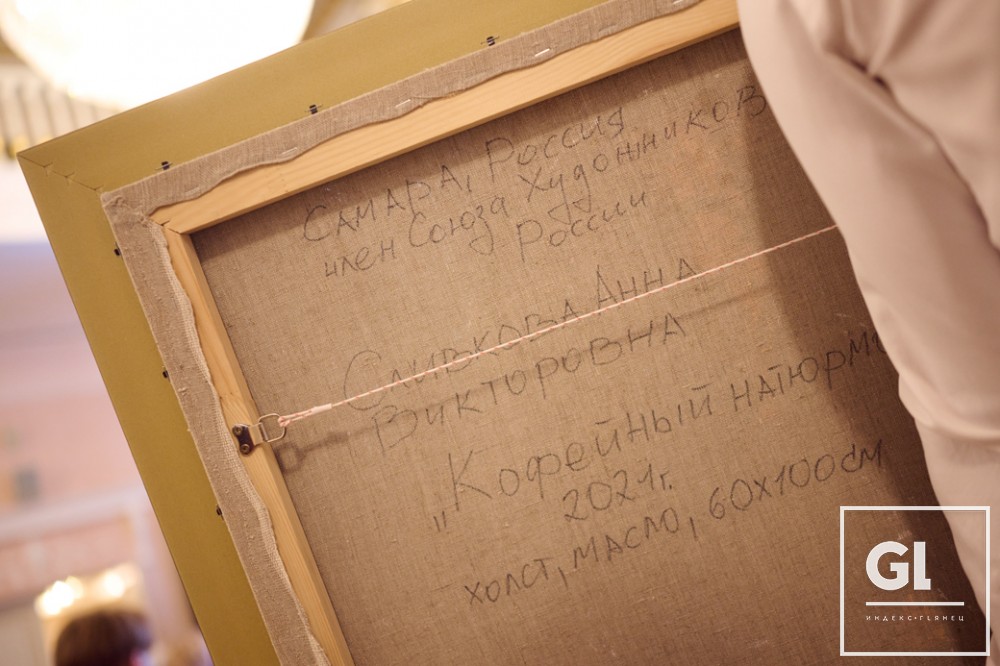 Самара, Россия
член Союза Художников
России
Сливкова Анна
Викторовна
„Кофейный
2021г.
холст, масло, 60х100см
GL
ИНДЕКС•ГЛЯНЕЦ